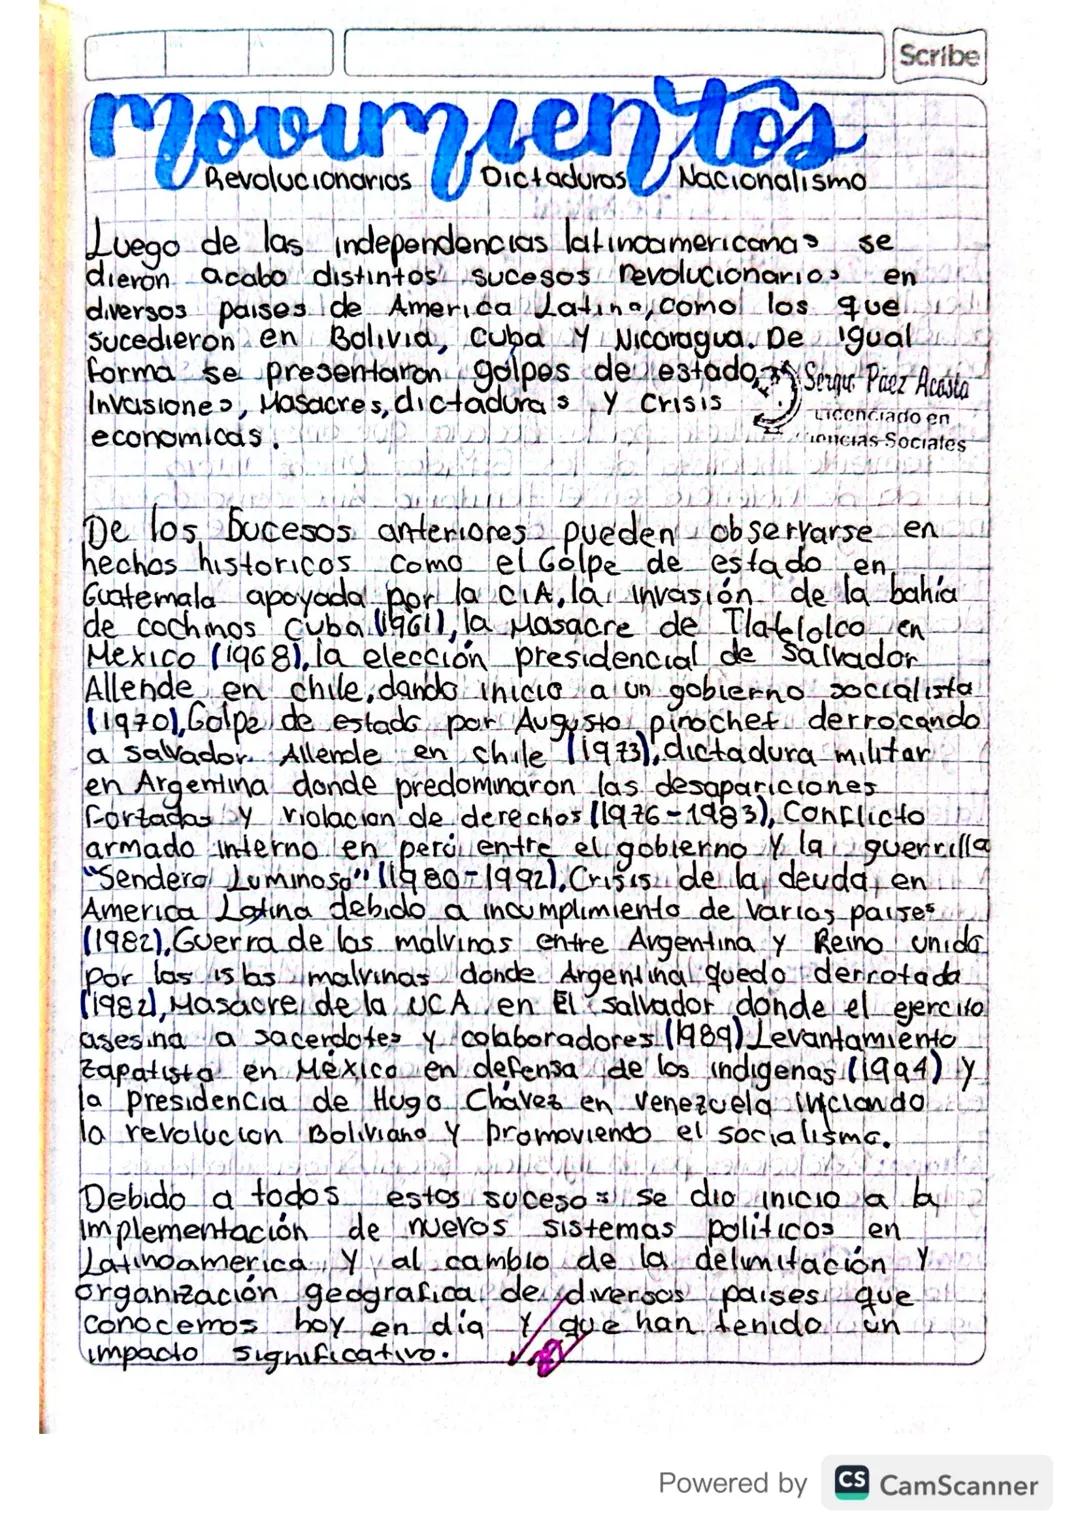 Scribe
Movimientos
Revolucionarios Dictaduras Nacionalismo
Luego de las independencias latinoamericanas se
dieron acabo distintos sucesos revolucionarios en
diversos paises de America Latina, como los que
sucedieron en Bolivia, Cuba y Nicaragua. De igual
forma se presentaron golpes de estado,
Invasiones, Masacres, dictaduras y Crisis
economicas.
Sergio Páez Acosta
Licenciado en
iencias Sociales
De los Sucesos anteriores pueden observarse en
hechos historicos como el Golpe de estado en
Guatemala apoyada por la CIA, la invasión de la bahía
de cochinos Cuba (1961), la Masacre de Tlatelolco en
Mexico (1968), la elección presidencial de Salvador
Allende en chile, dando inicio a un gobierno socialista
(1970), Golpe de estado por Augusto pinochet derrocando
a salvador Allende en chile (1973), dictadura militar
en Argentina donde predominaron las desapariciones
forzadas y violacion de derechos (1976-1983), Conflicto
armado interno en perú entre el gobierno y la guerrilla
"Sendero Luminoso" (1980-1992), Crisis de la deuda en
America Latina debido a incumplimiento de varios paises
(1982), Guerra de las malvinas entre Argentina y Reino unido
por las islas malvinas donde Argentina quedo derrotada
(1982), Masacre de la UCA en El Salvador donde el ejercito
asesina a sacerdotes y colaboradores (1989) Levantamiento
Zapatista en México en defensa de los indigenas (1994) y
la presidencia de Hugo Chávez en venezuela iniciando
la revolucion Boliviana y promoviendo el socialismo.
Debido a todos estos sucesos se dio inicio a la
implementación de nuevos sistemas politicos en
Latinoamerica, y al cambio de la delimitación y
organización geografica de diversos paises que
conocemos hoy en día y que han tenido un
impacto significativo.
Powered by CS CamScanner